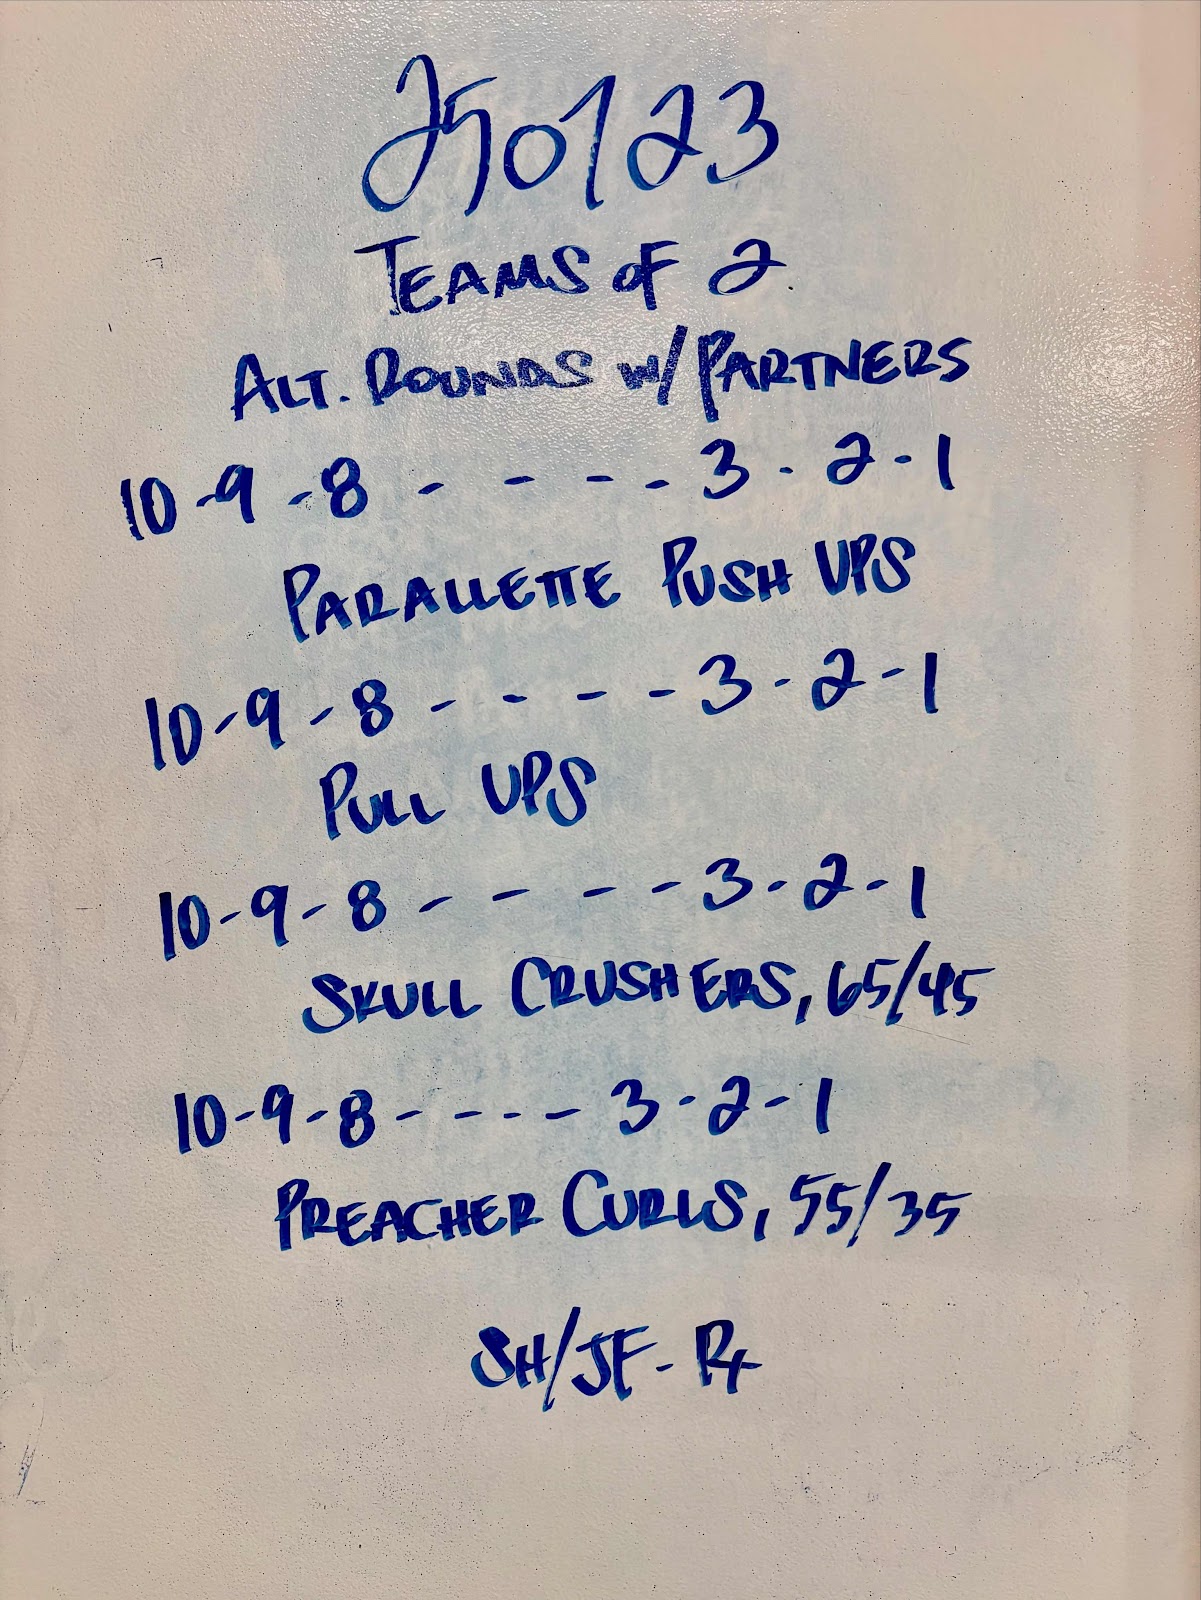 250123
TEAMS OF 2
ALT. ROUNDS W/ PARTNERS
10-9-8- - - - -3-2-1
PARALLETTE PUSH UPS
10-9-8- - - -3-2-1
PULL UPS
10-9-8- - - -3-2-1
SKULL CRUSHERS, 65/45
10-9-8- - - - -3-2-1
PREACHER CURLS, 55/35
SH/JF- Rx